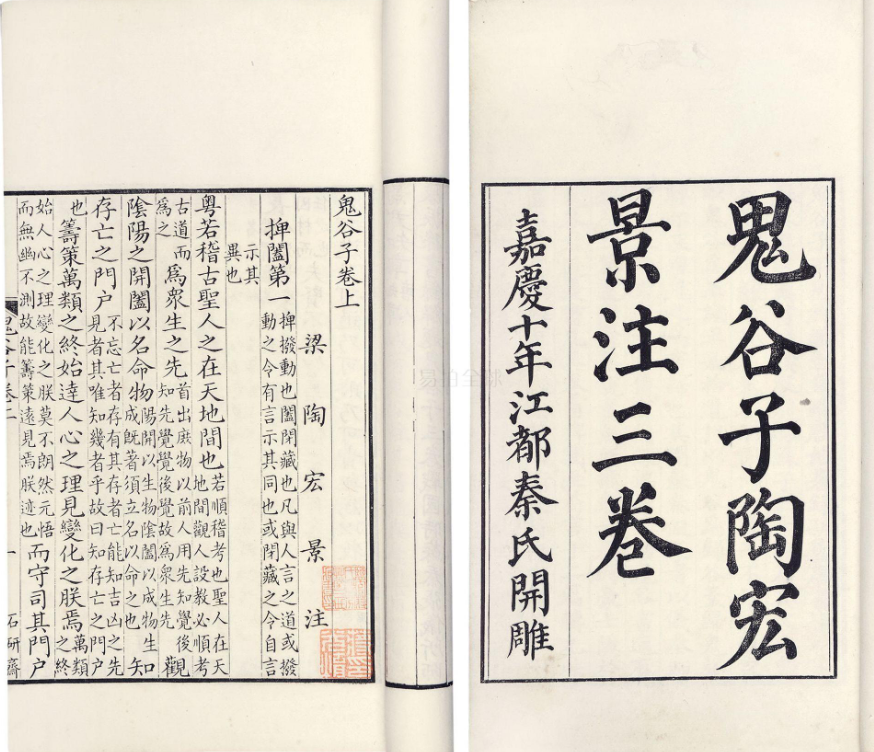 鬼谷子陶宏
景注三卷
嘉慶十年江都秦氏開雕
鬼谷子卷上
梁陶宏景注
捭闔第一捭撥動也闔閉藏也凡與人言之道或撥動之令有言示其同也或閉藏之令自言
示其異也
粵若稽古聖人之在天地間也若順稽考也聖人在天地間觀人設教必順考
古道而爲之爲衆生之先首出庶物以前人用先知覺後知先覺覺後覺故爲衆生先觀
陰陽之開闔以名命物陽開以生物陰闔以成物生成既著須立名以命之也知
存亡之門户不忘亡者存有其存者亡能知吉凶之先見者其唯知幾者乎故曰知存亡之門户
也籌策萬類之終始達人心之理見變化之朕焉萬類之終
始人心之理變化之朕莫不朗然元悟而無幽不測故能籌策遠見焉朕迹也而守司其門户
一 石研齋